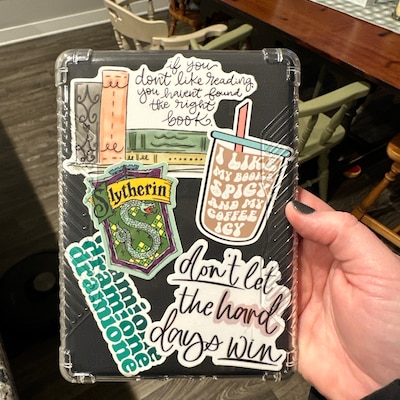 if you
don't like reading,
you haven't found
the right
book
Slytherin
I LIKE
MY BOOKS
SPICY
AND MY
COFFEE
ICY
dramione
dramione
dramione
dramione
don't let
the hard
days win